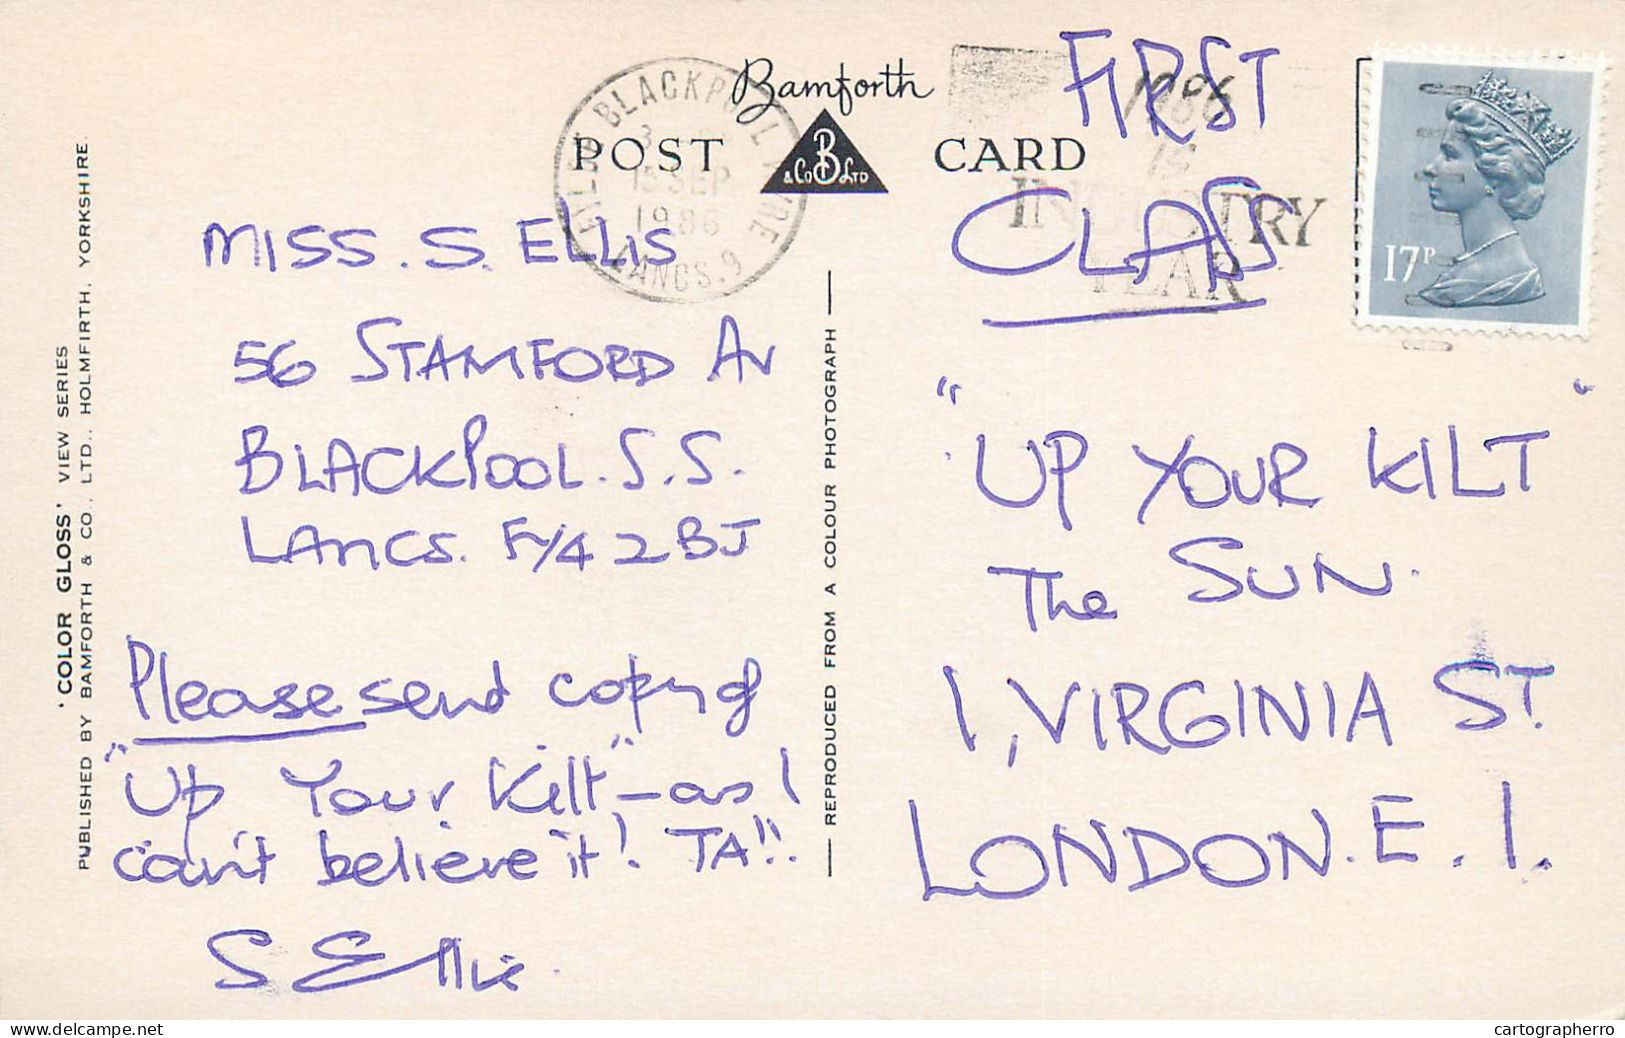 Bamforth
POST CARD
B
& Co LTD
BLACKPOOL FYLDE
15 SEP
1986
LANCS. 9
1986
IS
INDUSTRY
YEAR
17P
FIRST
CLASS
MISS. S. ELLIS
56 STAMFORD AV
BLACKPOOL. S.S.
LANCS. FY4 2BJ
Please send copy of
"Up Your Kilt" - as I
can't believe it! TA!!
S Ellis
"UP YOUR KILT"
The SUN.
1, VIRGINIA ST.
LONDON. E. 1.
'COLOR GLOSS' VIEW SERIES
PUBLISHED BY BAMFORTH & CO., LTD., HOLMFIRTH, YORKSHIRE.
REPRODUCED FROM A COLOUR PHOTOGRAPH
cartographerro